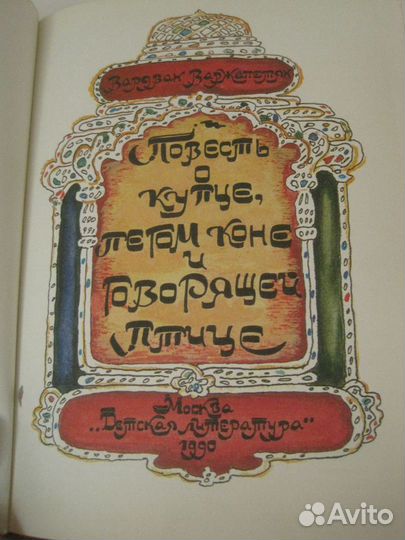 Вардван Варжапетян
Повесть
о
купце,
пегом коне
и
говорящей
птице
Москва
„Детская литература"
1990
Avito